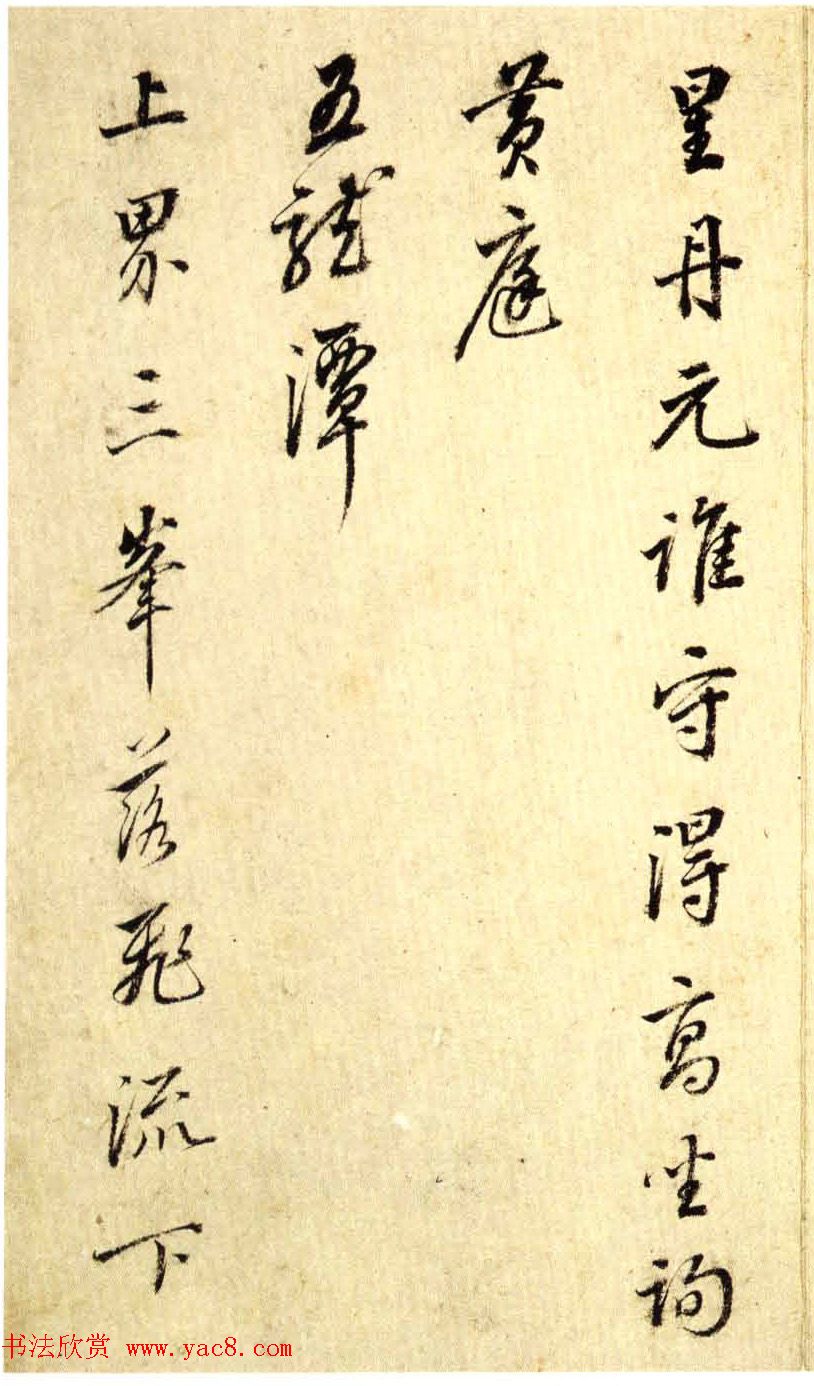 星丹元谁守得高坐詢
黄庭
五龍潭
上界三峯落飛流下
书法欣赏 www.yac8.com